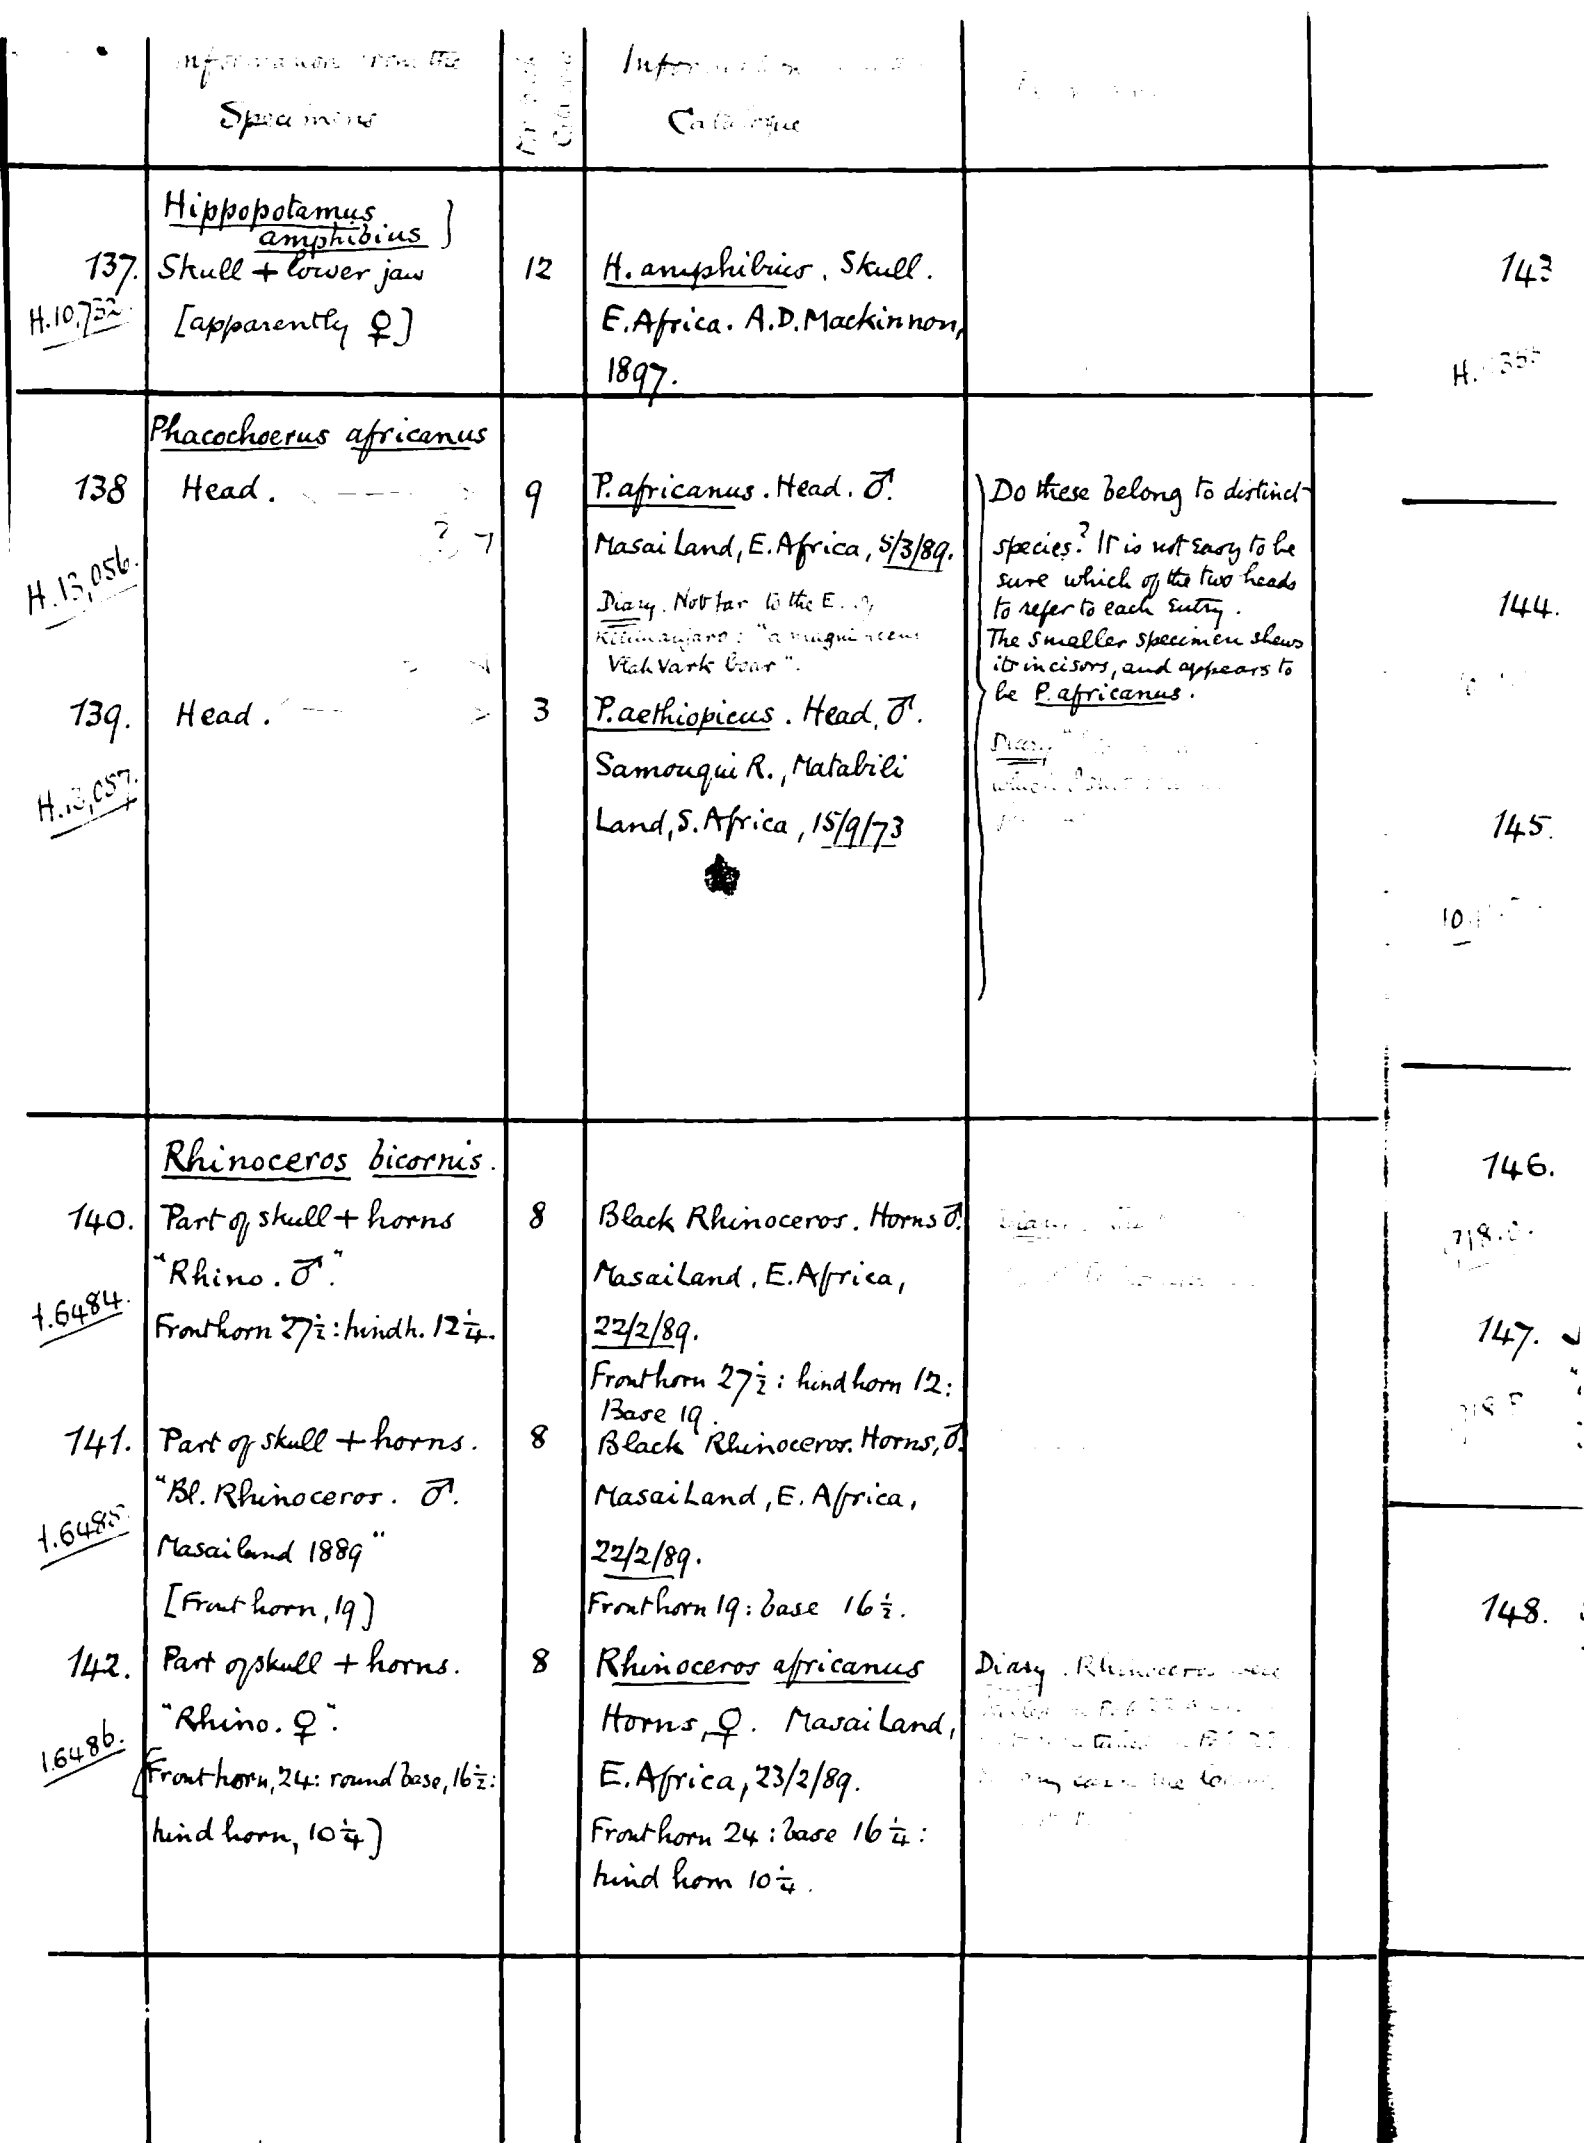 Information from the
Specimens
Information
Catalogue
Hippopotamus
amphibius
137. Skull + lower jaw
H.10,732.
[apparently ♀]
12
H. amphibius. Skull.
E. Africa. A.D. Mackinnon,
1897.
Phacochoerus africanus
138 Head.
H.13,056.
9
P. africanus. Head. ♂.
Masai Land, E. Africa, 5/3/89.
Diary. Not far to the E. of
Kilimanjaro: "a magnificent
Vlak Vark boar".
Do these belong to distinct
species? It is not easy to be
sure which of the two heads
to refer to each entry.
The smaller specimen shews
its incisors, and appears to
be P. africanus.
Diary
which
139. Head.
H.13,057.
3
P. aethiopicus. Head, ♂.
Samouqui R., Matabili
Land, S. Africa, 15/9/73
Rhinoceros bicornis.
140. Part of skull + horns
"Rhino. ♂."
1.6484.
Front horn 27½: hind h. 12¼.
8
Black Rhinoceros. Horns ♂.
Masai Land, E. Africa,
22/2/89.
Front horn 27½: hind horn 12:
Base 19.
141. Part of skull + horns.
"Bl. Rhinoceros. ♂.
1.6485.
Masailand 1889"
[Front horn, 19]
8
Black Rhinoceros. Horns, ♂.
Masai Land, E. Africa,
22/2/89.
Front horn 19: base 16½.
142. Part of skull + horns.
"Rhino. ♀".
1.6486.
[Front horn, 24: round base, 16½:
hind horn, 10¼]
8
Rhinoceros africanus
Horns, ♀. Masai Land,
E. Africa, 23/2/89.
Front horn 24: base 16¼:
hind horn 10¼.
Diary. Rhinoceros were
143
144.
145.
146.
147.
148.